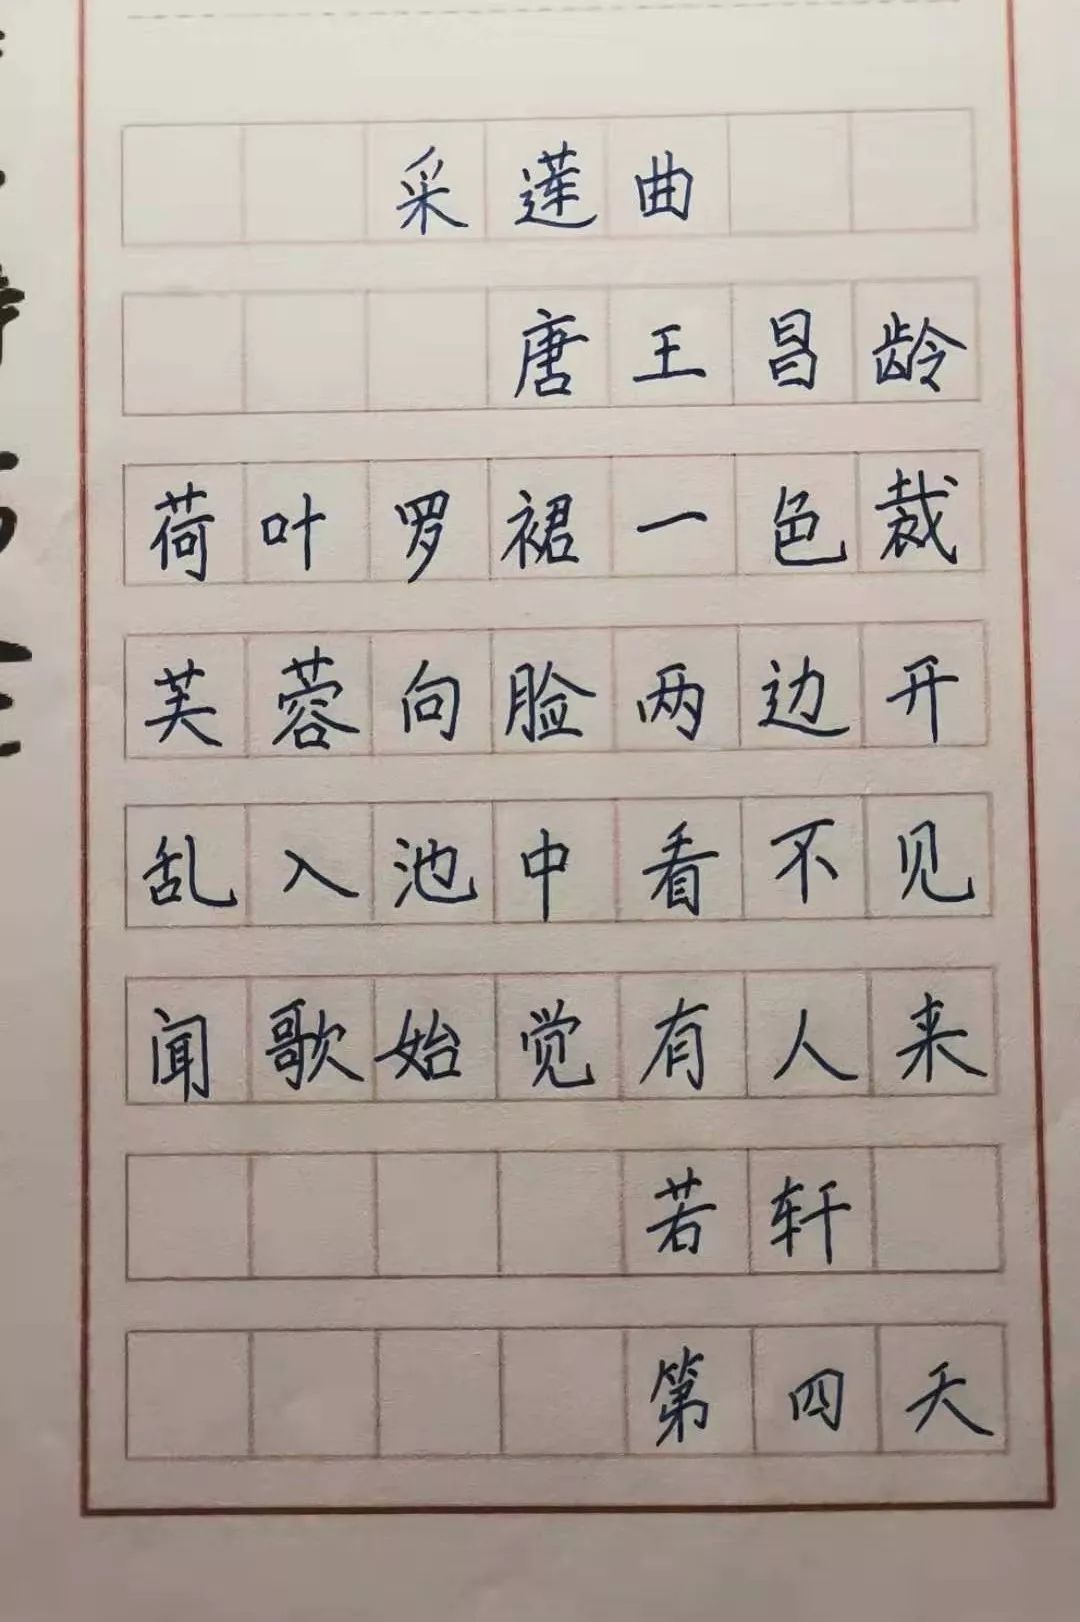 采莲曲
唐王昌龄
荷叶罗裙一色裁
芙蓉向脸两边开
乱入池中看不见
闻歌始觉有人来
若轩
第四天